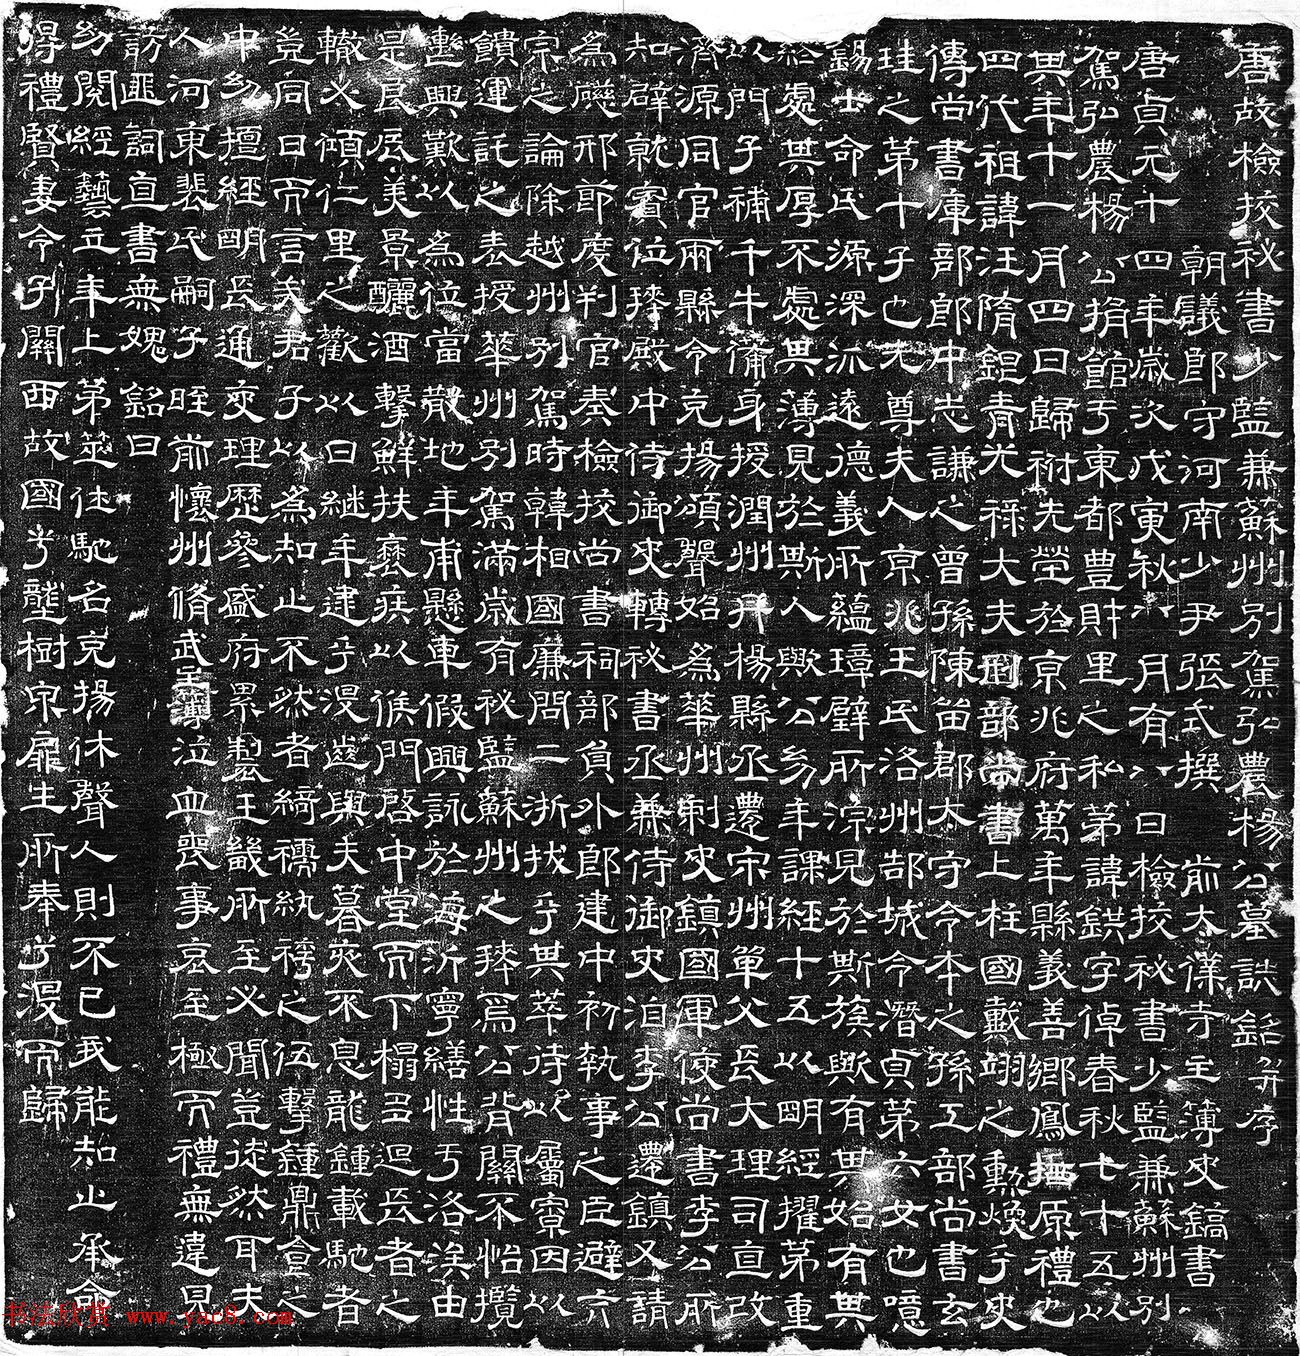 唐故檢挍秘書少監兼蘇州別駕弘農楊公墓誌銘并序
朝議郎守河南少尹張式撰 前太僕寺主簿史鎬書
唐貞元十四年歲次戊寅秋八月有八日檢挍秘書少監兼蘇州別
駕弘農楊公捐館于東都豊財里之私第諱鉷字倬春秋七十五以
其年十一月四日歸祔先塋於京兆府萬年縣義善鄉鳳栖原禮也
四代祖諱汪隋銀青光祿大夫刑部尚書上柱國戴翊之勳煥乎史
傳尚書庫部郎中志謙之曾孫陳留郡太守令本之孫工部尚書玄
珪之第十子也先尊夫人京兆王氏洛州郜城令潛貞第六女也噫
錫土命氏源深派遠德義所蘊璋璧所淙見於斯蔟歟有其始有其
終處其厚不處其薄見於斯人歟公幼年課經十五以明經擢第重
以門子補千牛備身授潤州丹楊縣丞遷宋州單父長大理司直改
濟源同官兩縣令克揚頌聲始為華州刺史鎮國軍使尚書李公所
知辟就賓位拜殿中侍御史轉秘書丞兼侍御史洎李公遷鎮又請
為慶邢節度判官奏檢挍尚書祠部員外郎建中初執事之臣避六
宗之論除越州別駕時韓相國廉問二浙拔乎其萃待以屬寮因以
饋運託之表授華州別駕滿歲有秘監蘇州之拜焉公背關不怡攬
轡興歎以為位當散地年甫懸車假興詠於海沂寧繕性于洛涘由
是良辰美景釃酒擊鮮扶羸疾以候門啓中堂而下榻多迴長者之
轍必傾仁里之歡以日繼年逮乎沒齒與夫暮夾不息龍鍾載馳者
豈同日而言矣君子以為知止不然者綺襦紈袴之伍擊鍾鼎食之
中幼擅經明長通吏理歷參盛府累製王畿所至必聞豈徒然耳夫
人河東裴氏嗣子晊前懷州脩武主簿泣血喪事哀至極而禮無違曰
訪匪詞直書無媿銘曰
幼閱經藝五年上第筮仕馳名克揚休聲人則不已我能知止承命
得禮賢妻令子關西故國兮壟樹宗扉生所奉兮沒而歸
书法欣赏 www.yac8.com